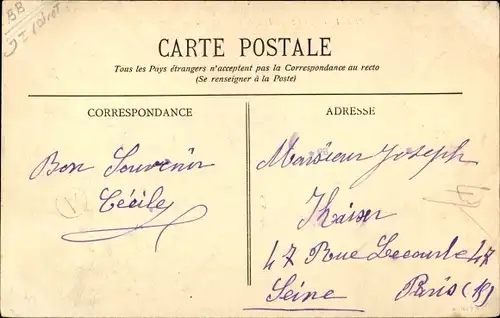 BB
CARTE POSTALE
Tous les Pays étrangers n'acceptent pas la Correspondance au recto
(Se renseigner à la Poste)
CORRESPONDANCE
Bon Souvenir
Cécile
ADRESSE
Monsieur Joseph
Kaiser
47 Rue Lecourbe 47
Seine Paris (15)